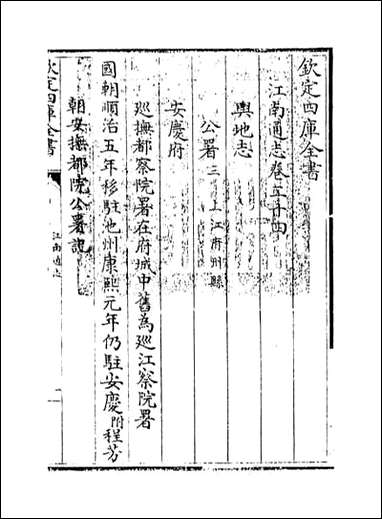 欽定四庫全書
江南通志卷二十四
輿地志
公署三 上江府州縣
安慶府
巡撫都察院署在府城中舊為巡江察院署
國朝順治五年移駐池州康熙元年仍駐安慶附程芳
朝安撫都院公署記
欽定四庫全書
江南通志
一